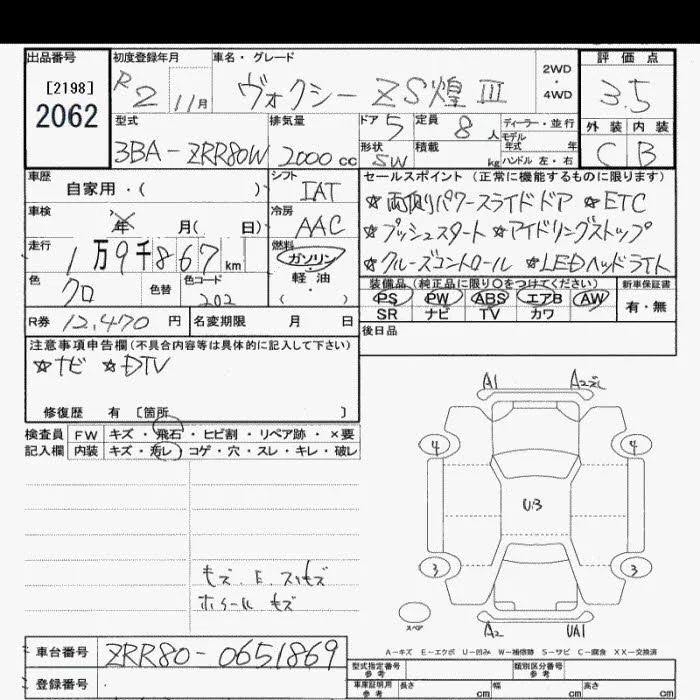 出品番号 初度登録年月 車名・グレード 評価点
[2198] 2062
R2 11月 ヴォクシー ZS煌Ⅲ 2WD・4WD 3.5
外装 内装
C B
型式 排気量 ドア 5 定員 8人 ディーラー・並行
モデル年式 年
3BA-ZRR80W 2000cc 形状 SW 積載 kg ハンドル 左・右
車歴 シフト セールスポイント(正常に機能するものに限ります)
自家用・( ) IAT ☆両側パワースライドドア ☆ETC
車検 冷房
年 月( 日) AAC ☆プッシュスタート ☆アイドリングストップ
走行 燃料
1万9千867km ガソリン・軽油・( ) ☆クルーズコントロール ☆LEDヘッドライト
色 色替 色コード 装備品(純正品に限り○をつけてください) 新車保証書
クロ 202 PS PW ABS エアB AW 有・無
SR ナビ TV カワ
R券 12,470円 名変期限 月 日 後日品
注意事項申告欄(不具合内容等は具体的に記入して下さい)
☆ナビ ☆DTV
修復歴 有 [箇所 ]
検査員 FW キズ・飛石・ヒビ割・リペア跡・×要
記入欄 内装 キズ・汚レ・コゲ・穴・スレ・キレ・破レ
A1 A2
4 4
UB
3 3
スペア
A2 UA1
A-キズ E-エクボ U-凹み W-補修跡 S-サビ C-腐食 XX-交換済
車台番号 ZRR80-0651869
登録番号
型式指定番号 参考 類別区分番号 参考
車庫証明用 参考 長さ cm 幅 cm 高さ cm